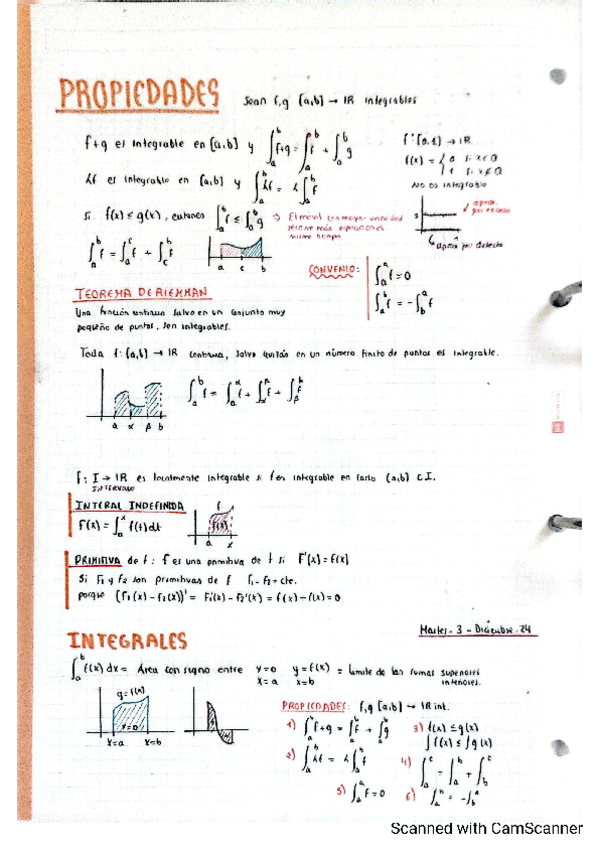 PROPIEDADES Sean f,g [a,b] → IR integrables
f+g es integrable en [a,b] y ∫_a^b f+g = ∫_a^b f + ∫_a^b g
f:[0,1] → IR
f(x) = { 0 si x∈Q
1 si x∉Q
No es integrable
λf es integrable en [a,b] y ∫_a^b λf = λ∫_a^b f
Si f(x) ≤ g(x), entonces ∫_a^b f ≤ ∫_a^b g → El movil con mayor velocidad
recorre más espacio en el
mismo tiempo.
aprox.
por exceso
aprox por defecto
∫_a^b f = ∫_a^c f + ∫_c^b f
a c b
CONVENIO: ∫_a^a f = 0
∫_a^b f = -∫_b^a f
TEOREMA DE RIEMMAN
Una función continua salvo en un conjunto muy
pequeño de puntos, son integrables.
Toda f: [a,b] → IR continua, salvo quizás en un número finito de puntos es integrable.
∫_a^b f = ∫_a^α f + ∫_α^β f + ∫_β^b f
a α β b
f: I → IR es localmente integrable si f es integrable en cada [a,b] ⊂ I.
INTERVALO
INTERAL INDEFINIDA
F(x) = ∫_a^x f(t)dt
f
F(x)
a x
PRIMITIVA de f: F es una primitiva de f si F'(x) = f(x)
Si F1 y F2 son primitivas de f F1 - F2 = cte.
porque (F1(x) - F2(x))' = F1'(x) - F2'(x) = f(x) - f(x) = 0
Martes - 3 - Diciembre - 24
INTEGRALES
∫_a^b f(x) dx = Área con signo entre y=0 y=f(x) = límite de las sumas superiores
x=a x=b inferiores.
y=f(x)
y=0
x=a x=b
PROPIEDADES: f,g [a,b] → IR int.
1) ∫_a^b f+g = ∫_a^b f + ∫_a^b g 3) f(x) ≤ g(x)
∫f(x) ≤ ∫g(x)
2) ∫_a^b λf = λ∫_a^b f 4) ∫_a^c = ∫_a^b + ∫_b^c
5) ∫_a^a f = 0 6) ∫_a^b = -∫_b^a
Scanned with CamScanner